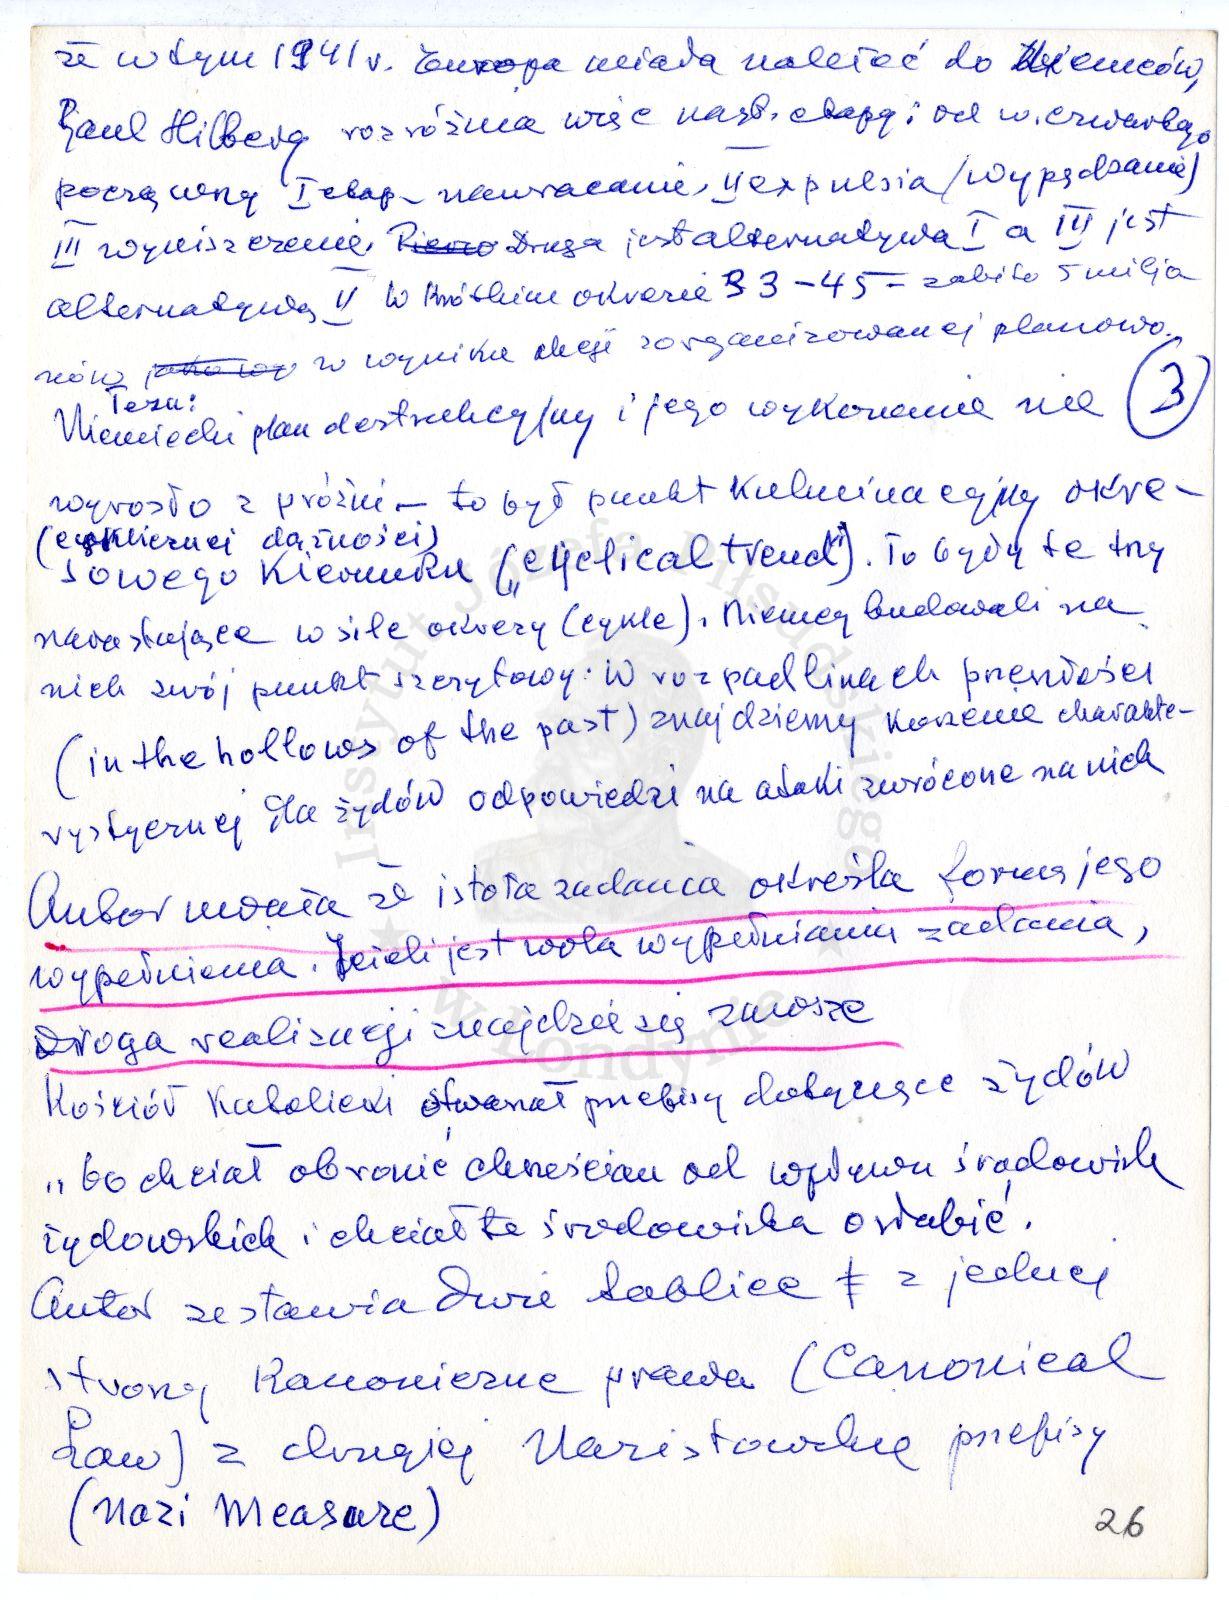 że w tym 1941 r. Europa miała należeć do Niemców,
Raul Hilberg rozróżnia więc nast. etapy: od w. czwartego
począwszy I etap – nawracanie, II expulsia (wypędzanie)
III wyniszczenie. Pierw Druga jest alternatywą I a III jest
alternatywą II W krótkim okresie 33–45 – zabito 5 miljo
nów jako wy w wyniku akcji zorganizowanej planowo.
Teza:
Niemiecki plan destrukcyjny i jego wykonanie nie
3
wyrosło z próżni – to był punkt kulminacyjny okre-
(cyklicznej dążności)
sowego kierunku („cyclical trend"). To były te trzy
narastające w sile okresy (cykle). Niemcy budowali na
nich swój punkt szczytowy. W rozpadlinach przeszłości
(in the hollows of the past) znajdziemy korzenie charakte-
rystycznej dla żydów odpowiedzi na ataki zwrócone na nich
Autor uważa że istota zadania określa formę jego
wypełnienia. Jeżeli jest wola wypełniania zadania,
Droga realizacji znajdzie się zawsze
Kościół katolicki stwarzał przepisy dotyczące żydów
„bo chciał obronić chrześcian od wpływu środowisk
żydowskich i chciał te środowiska osłabić.
Autor zestawia dwie tablice z jednej
strony Kanoniczne prawa (Canonical
Law) z drugiej Nazistowskie przepisy
(Nazi Measure)
26
Instytut Józefa Piłsudskiego
w Londynie